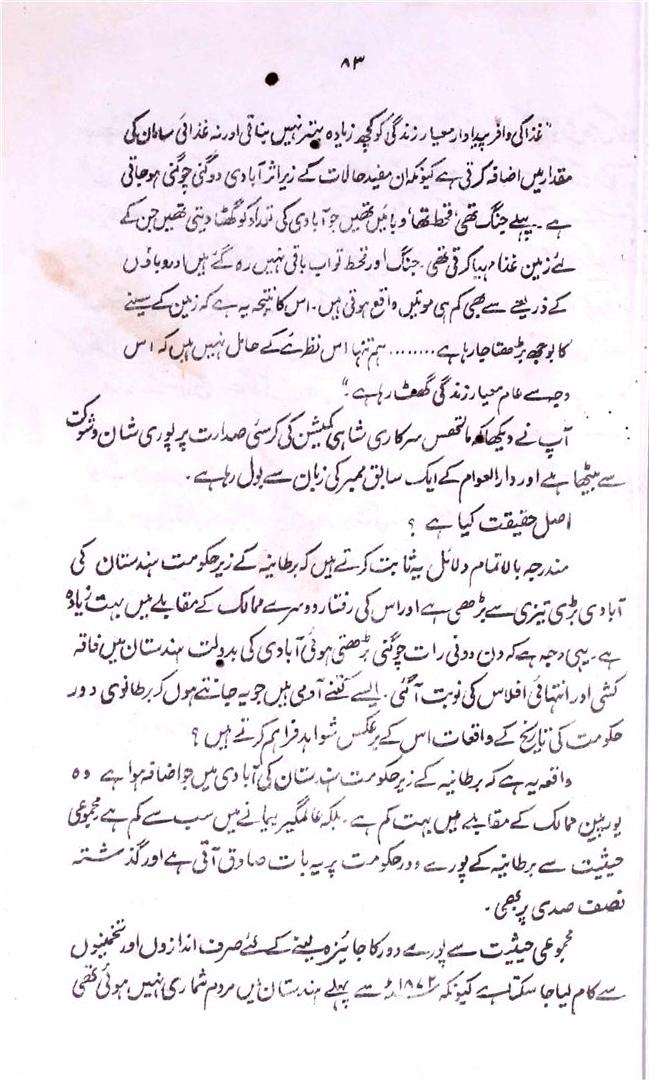 ۸۳
"غذا کی وافر پیداوار معیار زندگی کو کچھ زیادہ بہتر نہیں بناتی اور نہ غذائی سامان کی
مقدار میں اضافہ کرتی ہے کیونکہ ان مفید حالات کے زیر اثر آبادی دوگنی چوگنی ہو جاتی
ہے۔ پہلے جنگ تھی' قحط تھا' وبائیں تھیں جو آبادی کی تعداد کو گھٹا دیتی تھیں جن کے
لئے زمین غذا مہیا کرتی تھی۔ جنگ اور قحط تو اب باقی نہیں رہ گئے ہیں اور وباؤں
کے ذریعے سے بھی کم ہی موتیں واقع ہوتی ہیں۔ اس کا نتیجہ یہ ہے کہ زمین کے سینے
کا بوجھ بڑھتا جا رہا ہے ........ ہم تنہا اس نظرئے کے حامل نہیں ہیں کہ اس
وجہ سے عام معیار زندگی گھٹ رہا ہے۔"
آپ نے دیکھا کہ مالتھس سرکاری شاہی کمیشن کی کرسئی صدارت پر پوری شان و شوکت
سے بیٹھا ہے اور دارالعوام کے ایک سابق ممبر کی زبان سے بول رہا ہے۔
اصل حقیقت کیا ہے ؟
مندرجہ بالا تمام دلائل یہ ثابت کرتے ہیں کہ برطانیہ کے زیر حکومت ہندستان کی
آبادی بڑی تیزی سے بڑھی ہے اور اس کی رفتار دوسرے ممالک کے مقابلے میں بہت زیادہ
ہے۔ یہی وجہ ہے کہ دن دونی رات چوگنی بڑھتی ہوئی آبادی کی بدولت ہندستان میں فاقہ
کشی اور انتہائی افلاس کی نوبت آگئی۔ ایسے کتنے آدمی ہیں جو یہ جانتے ہوں کہ برطانوی دور
حکومت کی تاریخ کے واقعات اس کے برعکس شواہد فراہم کرتے ہیں ؟
واقعہ یہ ہے کہ برطانیہ کے زیر حکومت ہندستان کی آبادی میں جو اضافہ ہوا ہے وہ
یورپین ممالک کے مقابلے میں بہت کم ہے۔ بلکہ عالمگیر پیمانے میں سب سے کم ہے مجموعی
حیثیت سے برطانیہ کے پورے دور حکومت پر یہ بات صادق آتی ہے اور گذشتہ
نصف صدی پر بھی۔
مجموعی حیثیت سے پورے دور کا جائیزہ لینے کے لئے صرف اندازوں اور تخمینوں
سے کام لیا جا سکتا ہے کیونکہ ۱۸۷۲ء سے پہلے ہندستان میں مردم شماری نہیں ہوئی تھی